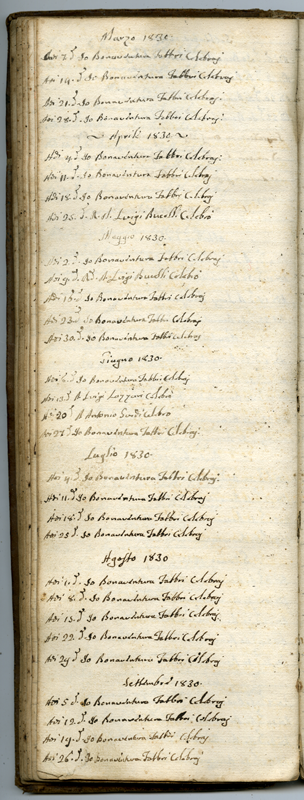 Marzo 1830
Adi 7 d.º Io Bonaventura Fabbri Celebraj
Adi 14 d.º Io Bonaventura Fabbri Celebraj
Adi 21 d.º Io Bonaventura Fabbri Celebraj
Adi 28 d.º Io Bonaventura Fabbri Celebraj
~ Aprile 1830 ~
Adi 4 d.º Io Bonaventura Fabbri Celebraj
Adi 11 d.º Io Bonaventura Fabbri Celebraj
Adi 18 d.º Io Bonaventura Fabbri Celebraj
Adi 25 d.º Luigi Bucelli Celebrò
Maggio 1830
Adi 2 d.º Io Bonaventura Fabbri Celebraj
Adi 9 d.º Luigi Bucelli Celebrò
Adi 16 d.º Io Bonaventura Fabbri Celebraj
Adi 23 d.º Io Bonaventura Fabbri Celebraj
Adi 30 d.º Io Bonaventura Fabbri Celebraj
Giugno 1830
Adi 6 d.º Io Bonaventura Fabbri Celebraj
Adi 13 d.º Luigi Celebrò
20 d.º Antonio Celebrò
Adi 27 d.º Io Bonaventura Fabbri Celebraj
Luglio 1830
Adi 4 d.º Io Bonaventura Fabbri Celebraj
Adi 11 d.º Io Bonaventura Fabbri Celebraj
Adi 18 d.º Io Bonaventura Fabbri Celebraj
Adi 25 d.º Io Bonaventura Fabbri Celebraj
Agosto 1830
Adi 1 d.º Io Bonaventura Fabbri Celebraj
Adi 8 d.º Io Bonaventura Fabbri Celebraj
Adi 15 d.º Io Bonaventura Fabbri Celebraj
Adi 22 d.º Io Bonaventura Fabbri Celebraj
Adi 29 d.º Io Bonaventura Fabbri Celebraj
Settembre 1830
Adi 5 d.º Io Bonaventura Fabbri Celebraj
Adi 12 d.º Io Bonaventura Fabbri Celebraj
Adi 19 d.º Io Bonaventura Fabbri Celebraj
Adi 26 d.º Io Bonaventura Fabbri Celebraj